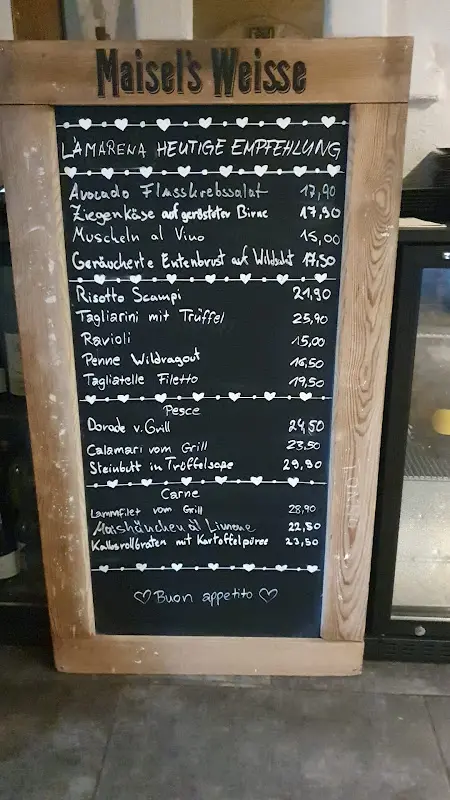 Maisel's Weisse
L'AMARENA HEUTIGE EMPFEHLUNG
Avocado Flusskrebssalat 17,90
Ziegenkäse auf gerösteter Birne 17,90
Muscheln al Vino 15,00
Geräucherte Entenbrust auf Wildsalat 17,50
Risotto Scampi 21,90
Tagliarini mit Trüffel 25,90
Ravioli 15,00
Penne Wildragout 16,50
Tagliatelle Filetto 19,50
Pesce
Dorade v. Grill 24,50
Calamari vom Grill 23,50
Steinbutt in Trüffelsoße 29,90
Carne
Lammfilet vom Grill 28,90
Maishänchen al Limone 22,50
Kalbsrollbraten mit Kartoffelpüree 23,50
Buon appetito